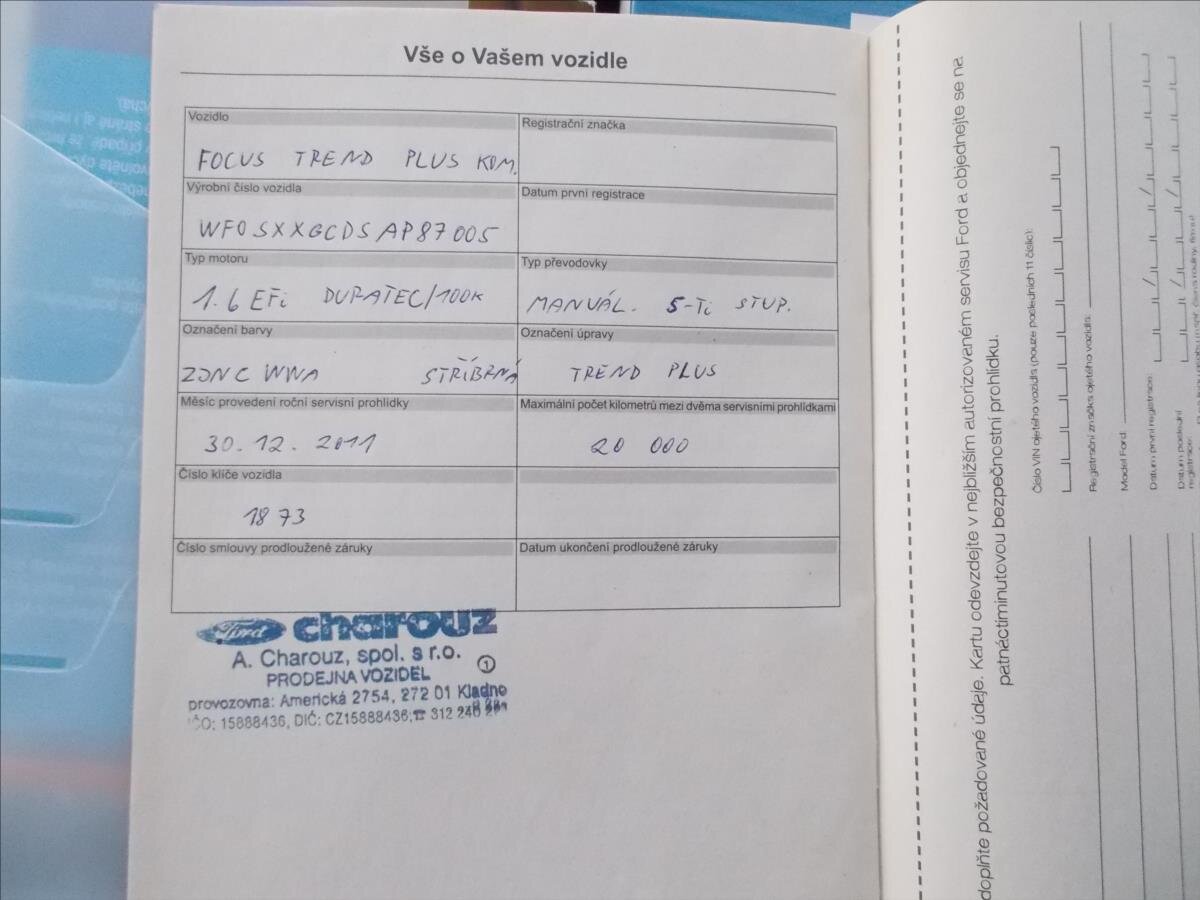 Vše o Vašem vozidle
Vozidlo
FOCUS TREND PLUS KOM.
Registrační značka
Výrobní číslo vozidla
WF0SXXGCDSAP87005
Datum první registrace
Typ motoru
1.6 EFi DURATEC/100k
Typ převodovky
MANUÁL. 5-Ti STUP.
Označení barvy
STŘÍBRNÁ
Označení úpravy
TREND PLUS
Měsíc provedení roční servisní prohlídky
30.12.2011
Maximální počet kilometrů mezi dvěma servisními prohlídkami
20 000
Číslo klíče vozidla
1873
Číslo smlouvy prodloužené záruky
Datum ukončení prodloužené záruky
Ford charouz
A. Charouz, spol. s r.o.
PRODEJNA VOZIDEL 1
provozovna: Americká 2754, 272 01 Kladno
IČO: 15888436, DIČ: CZ15888436, ☎ 312 246
doplňte požadované údaje. Kartu odevzdejte v nejbližším autorizovaném servisu Ford a objednejte se na
patnáctiminutovou bezpečnostní prohlídku.
Číslo VIN ojetého vozidla (pouze posledních 11 číslic):
Registrační značka ojetého vozidla:
Model Ford:
Datum první registrace:
Datum poslední
registrace: